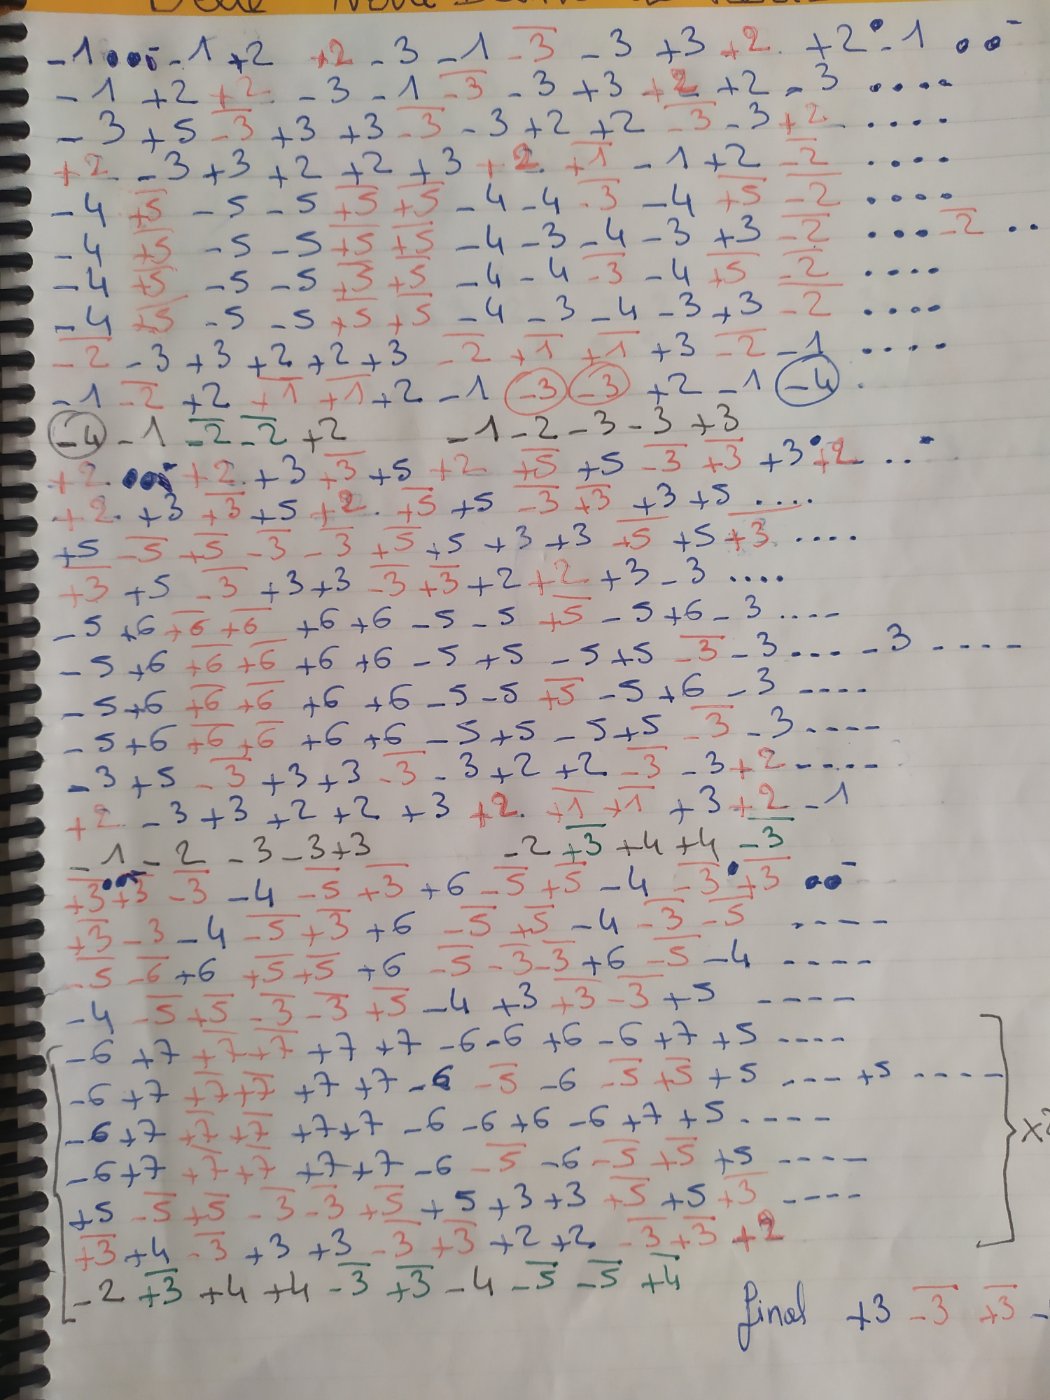 -1 ... -1 +2 +2 -3 -1 -3 -3 +3 +2 +2 -1 ..
-1 +2 +2 -3 -1 -3 -3 +3 +2 +2 -3 ....
-3 +5 -3 +3 +3 -3 -3 +2 +2 -3 -3 +2 ....
+2 -3 +3 +2 +2 +3 +2 +1 -1 +2 -2 ....
-4 +5 -5 -5 +5 +5 -4 -4 -3 -4 +5 -2 ....
-4 +5 -5 -5 +5 +5 -4 -3 -4 -3 +3 -2 .... -2 ..
-4 +5 -5 -5 +3 +5 -4 -4 -3 -4 +5 -2 ....
-4 +5 -5 -5 +5 +5 -4 -3 -4 -3 +3 -2 ....
-2 -3 +3 +2 +2 +3 -2 +1 +1 +3 -2 -1 ....
-1 -2 +2 +1 +1 +2 -1 -3 -3 +2 -1 -4 .
-4 -1 -2 -2 +2 -1 -2 -3 -3 +3
+2 +2 +3 +3 +5 +2 +5 +5 -3 +3 +3 +2 ...
+2 +3 +3 +5 +2 +5 +5 -3 +3 +3 +5 ....
+5 -5 +5 -3 -3 +5 +5 +3 +3 +5 +5 +3 ....
+3 +5 -3 +3 +3 -3 +3 +2 +2 +3 -3 ....
-5 +6 +6 +6 +6 +6 -5 -5 +5 -5 +6 -3 ....
-5 +6 +6 +6 +6 +6 -5 +5 -5 +5 -3 -3 .... -3 ....
-5 +6 +6 +6 +6 +6 -5 -5 +5 -5 +6 -3 ....
-5 +6 +6 +6 +6 +6 -5 +5 -5 +5 -3 -3 ....
-3 +5 -3 +3 +3 -3 -3 +2 +2 -3 -3 +2 ....
+2 -3 +3 +2 +2 +3 +2 +1 +1 +3 +2 -1
-1 -2 -3 -3 +3 -2 +3 +4 +4 -3
+3 +3 -3 -4 -5 +3 +6 -5 +5 -4 -3 +3 ..
+3 -3 -4 -5 +3 +6 -5 +5 -4 -3 -5 ....
-5 -6 +6 +5 +5 +6 -5 -3 -3 +6 -5 -4 ....
-4 -5 +5 -3 -3 +5 -4 +3 +3 -3 +5 ----
-6 +7 +7 +7 +7 +7 -6 -6 +6 -6 +7 +5 ----
-6 +7 +7 +7 +7 +7 -6 -5 -6 -5 +5 +5 ---- +5 ----
-6 +7 +7 +7 +7 +7 -6 -6 +6 -6 +7 +5 ----
-6 +7 +7 +7 +7 +7 -6 -5 -6 -5 +5 +5 ----
+5 -5 +5 -3 -3 +5 +5 +3 +3 +5 +5 +3 ----
+3 +4 -3 +3 +3 -3 +3 +2 +2 -3 +3 +2
-2 +3 +4 +4 -3 +3 -4 -5 -5 +4
final +3 -3 +3